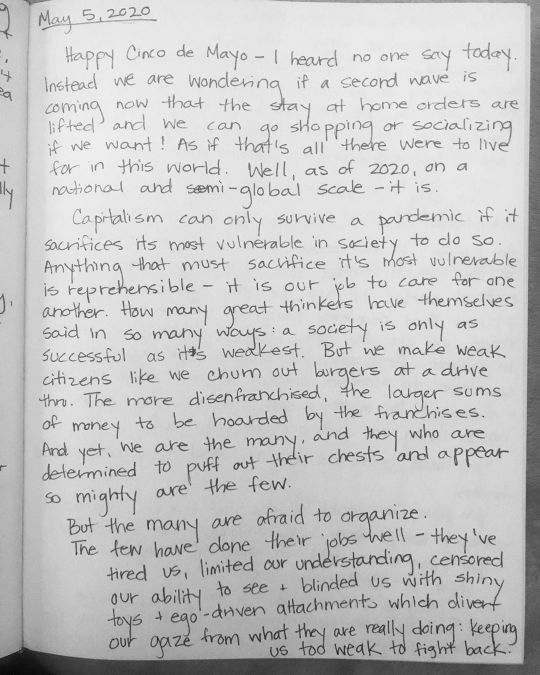 May 5, 2020
Happy Cinco de Mayo – I heard no one say today.
Instead we are wondering if a second wave is
coming now that the stay at home orders are
lifted and we can go shopping or socializing
if we want! As if that's all there were to live
for in this world. Well, as of 2020, on a
national and semi-global scale – it is.
Capitalism can only survive a pandemic if it
sacrifices its most vulnerable in society to do so.
Anything that must sacrifice it's most vulnerable
is reprehensible – it is our job to care for one
another. How many great thinkers have themselves
said in so many ways: a society is only as
successful as its weakest. But we make weak
citizens like we churn out burgers at a drive
thru. The more disenfranchised, the larger sums
of money to be hoarded by the franchises.
And yet, we are the many, and they who are
determined to puff out their chests and appear
so mighty are the few.
But the many are afraid to organize.
The few have done their jobs well – they've
tired us, limited our understanding, censored
our ability to see + blinded us with shiny
toys + ego-driven attachments which divert
our gaze from what they are really doing: keeping
us too weak to fight back.